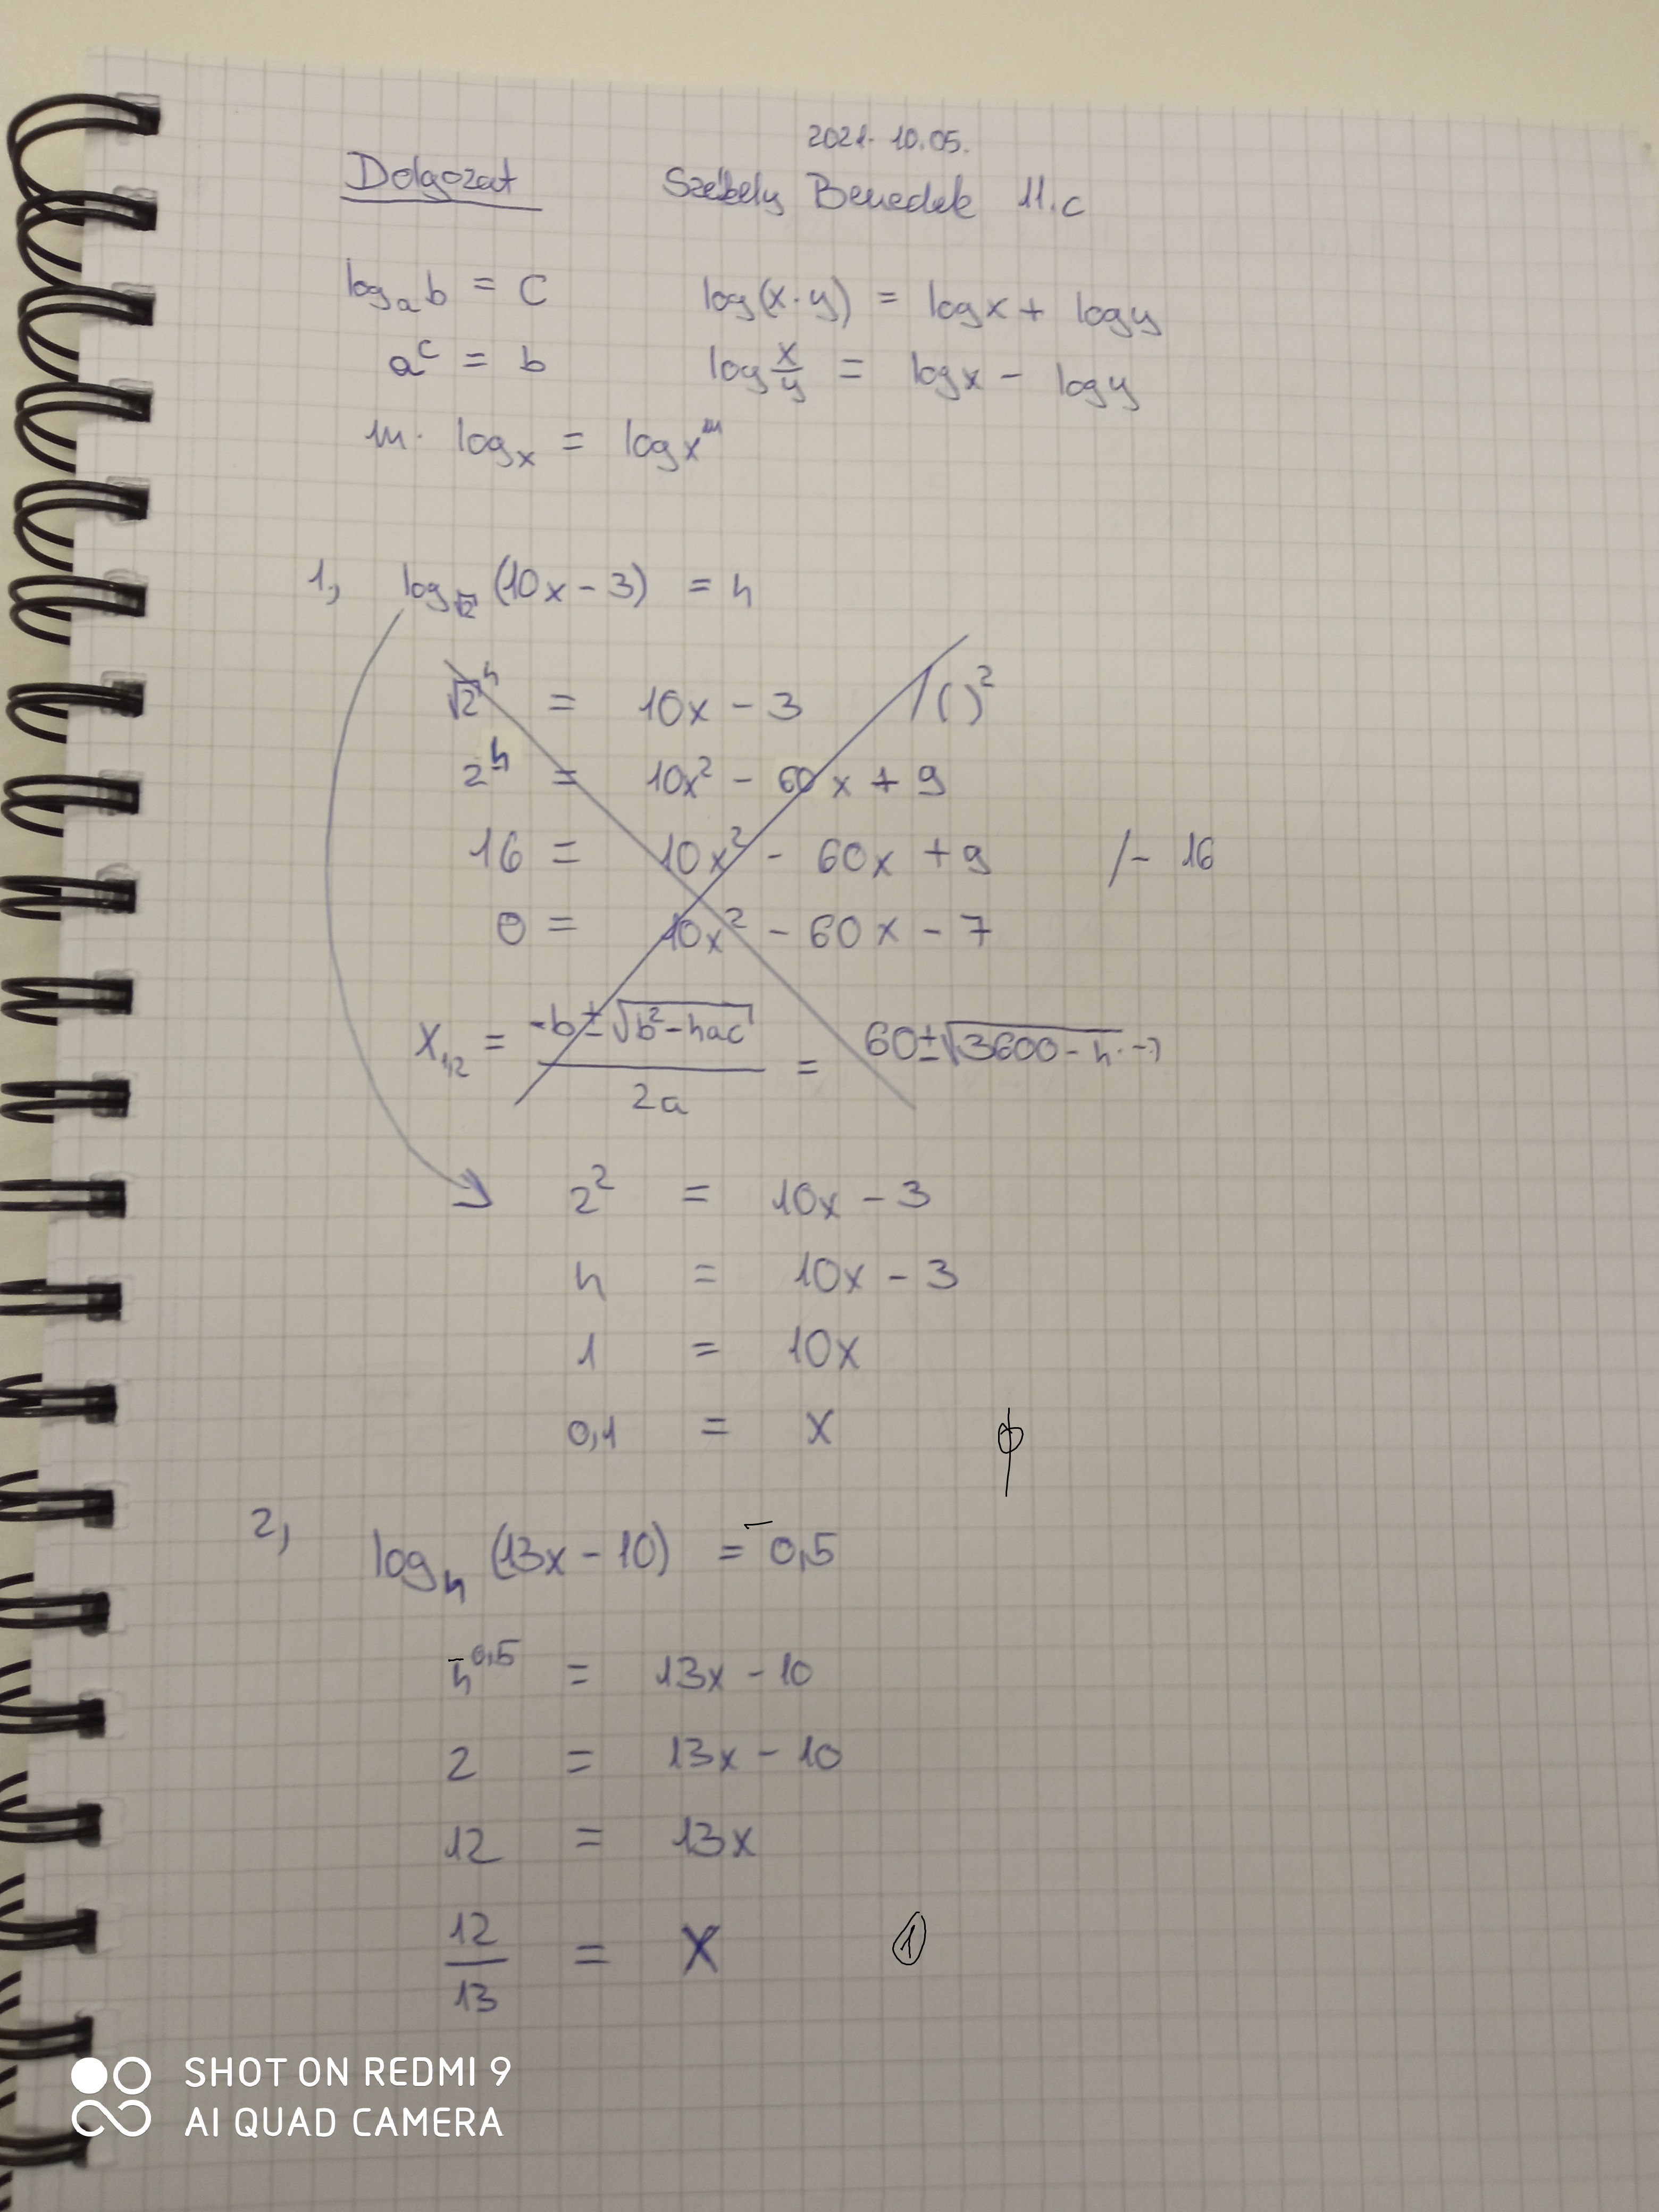 2021. 10.05.
Dolgozat Székely Benedek 11.c
logₐ b = c log(x·y) = logx + logy
aᶜ = b log x/y = logx - logy
m· logₓ = logxᵐ
1, log_√2 (10x-3) = 4
√2⁴ = 10x - 3 /( )²
2⁴ = 10x² - 60x + 9
16 = 10x² - 60x + 9 /- 16
0 = 10x² - 60x - 7
X₁,₂ = (-b±√(b²-4ac))/2a = 60±√(3600-4·-7
2² = 10x - 3
4 = 10x - 3
1 = 10x
0,1 = x ϕ
2, log₄ (13x-10) = -0,5
4^0,5 = 13x - 10
2 = 13x - 10
12 = 13x
12/13 = X ①
SHOT ON REDMI 9
AI QUAD CAMERA